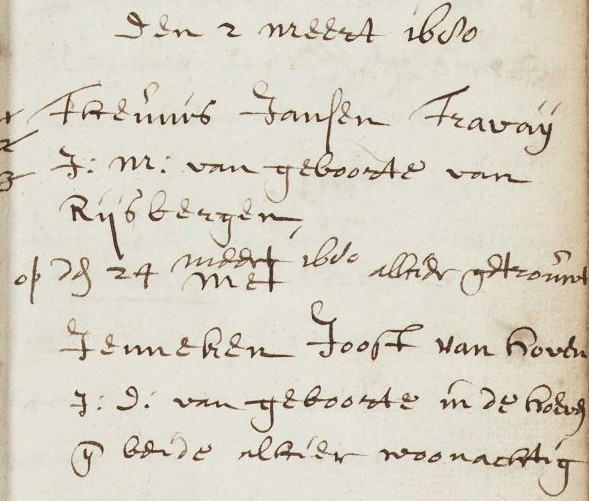 Den 2 meert 1680
Theunis Jansen Travaij
J: m: van geboorte van
Rijsbergen,
op den 24 meert 1680 alhier getrouwt
met
Jenneken Joost van hoven
J: d: van geboorte in de hoeve
beide alhier woonachtig